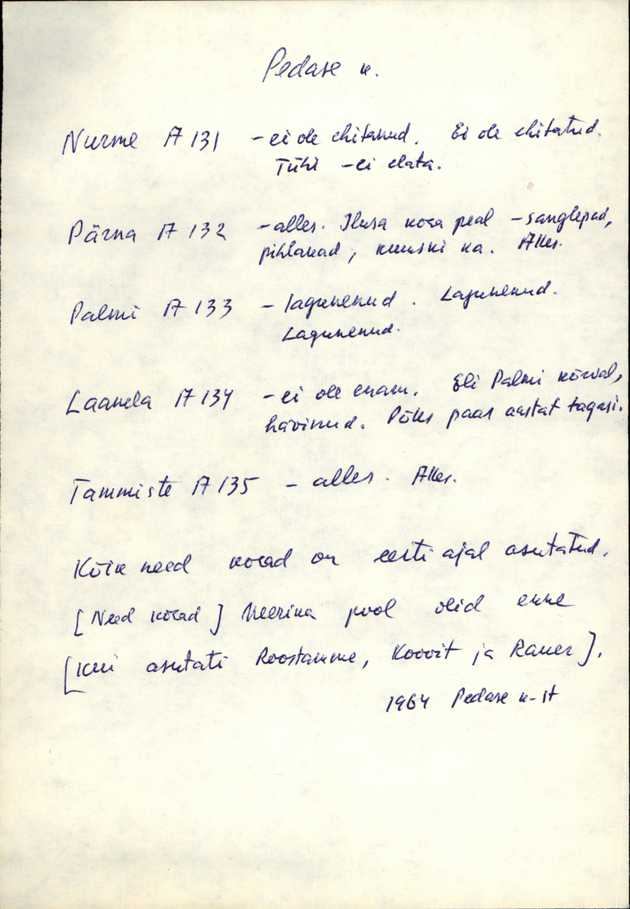 Pedase k.
Nurme A 131 - ei ole ehitanud. Ei ole ehitatud.
Tühi - ei elata.
Pärna A 132 - alles. Ilusa koha peal - sanglepad,
pihlakad, kuuski ka. Alles.
Palmi A 133 - lagunenud. Lagunenud.
Lagunenud.
Laanela A 134 - ei ole enam. Oli Palmi kõrval,
hävinud. Põles paar aastat tagasi.
Tammiste A 135 - alles. Alles.
Kõik need kohad on eesti ajal asutatud.
[Need kohad] Meerika pool olid enne
[kui asutati Roostamme, Koovit ja Rauer].
1964 Pedase k-st